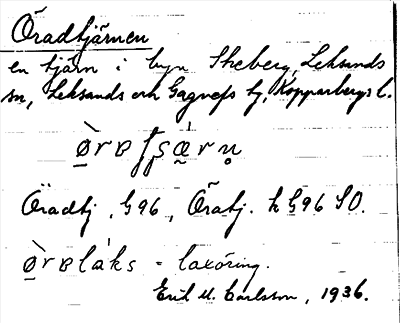 Öradtjärnen
en tjärn i byn Skeberg, Leksands
sn, Leksands och Gagnefs tj, Kopparbergs l.
Öradtj. G96, Öratj. k G96 SO.
- laxöring.
Erik M. Carlsson, 1936.